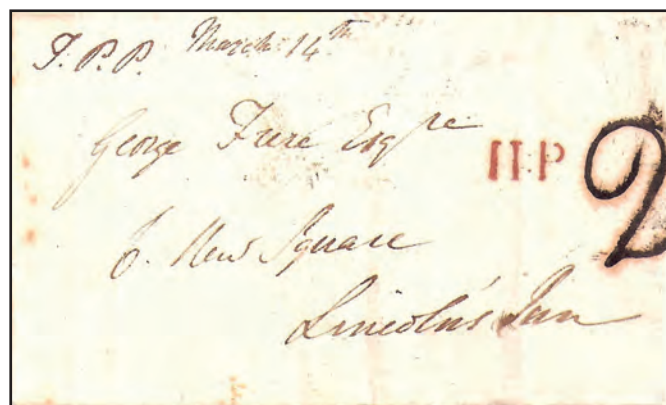 T.P.P. March 14th
George Frere Esqre
II.P
2
6. New Square
Lincoln's Inn